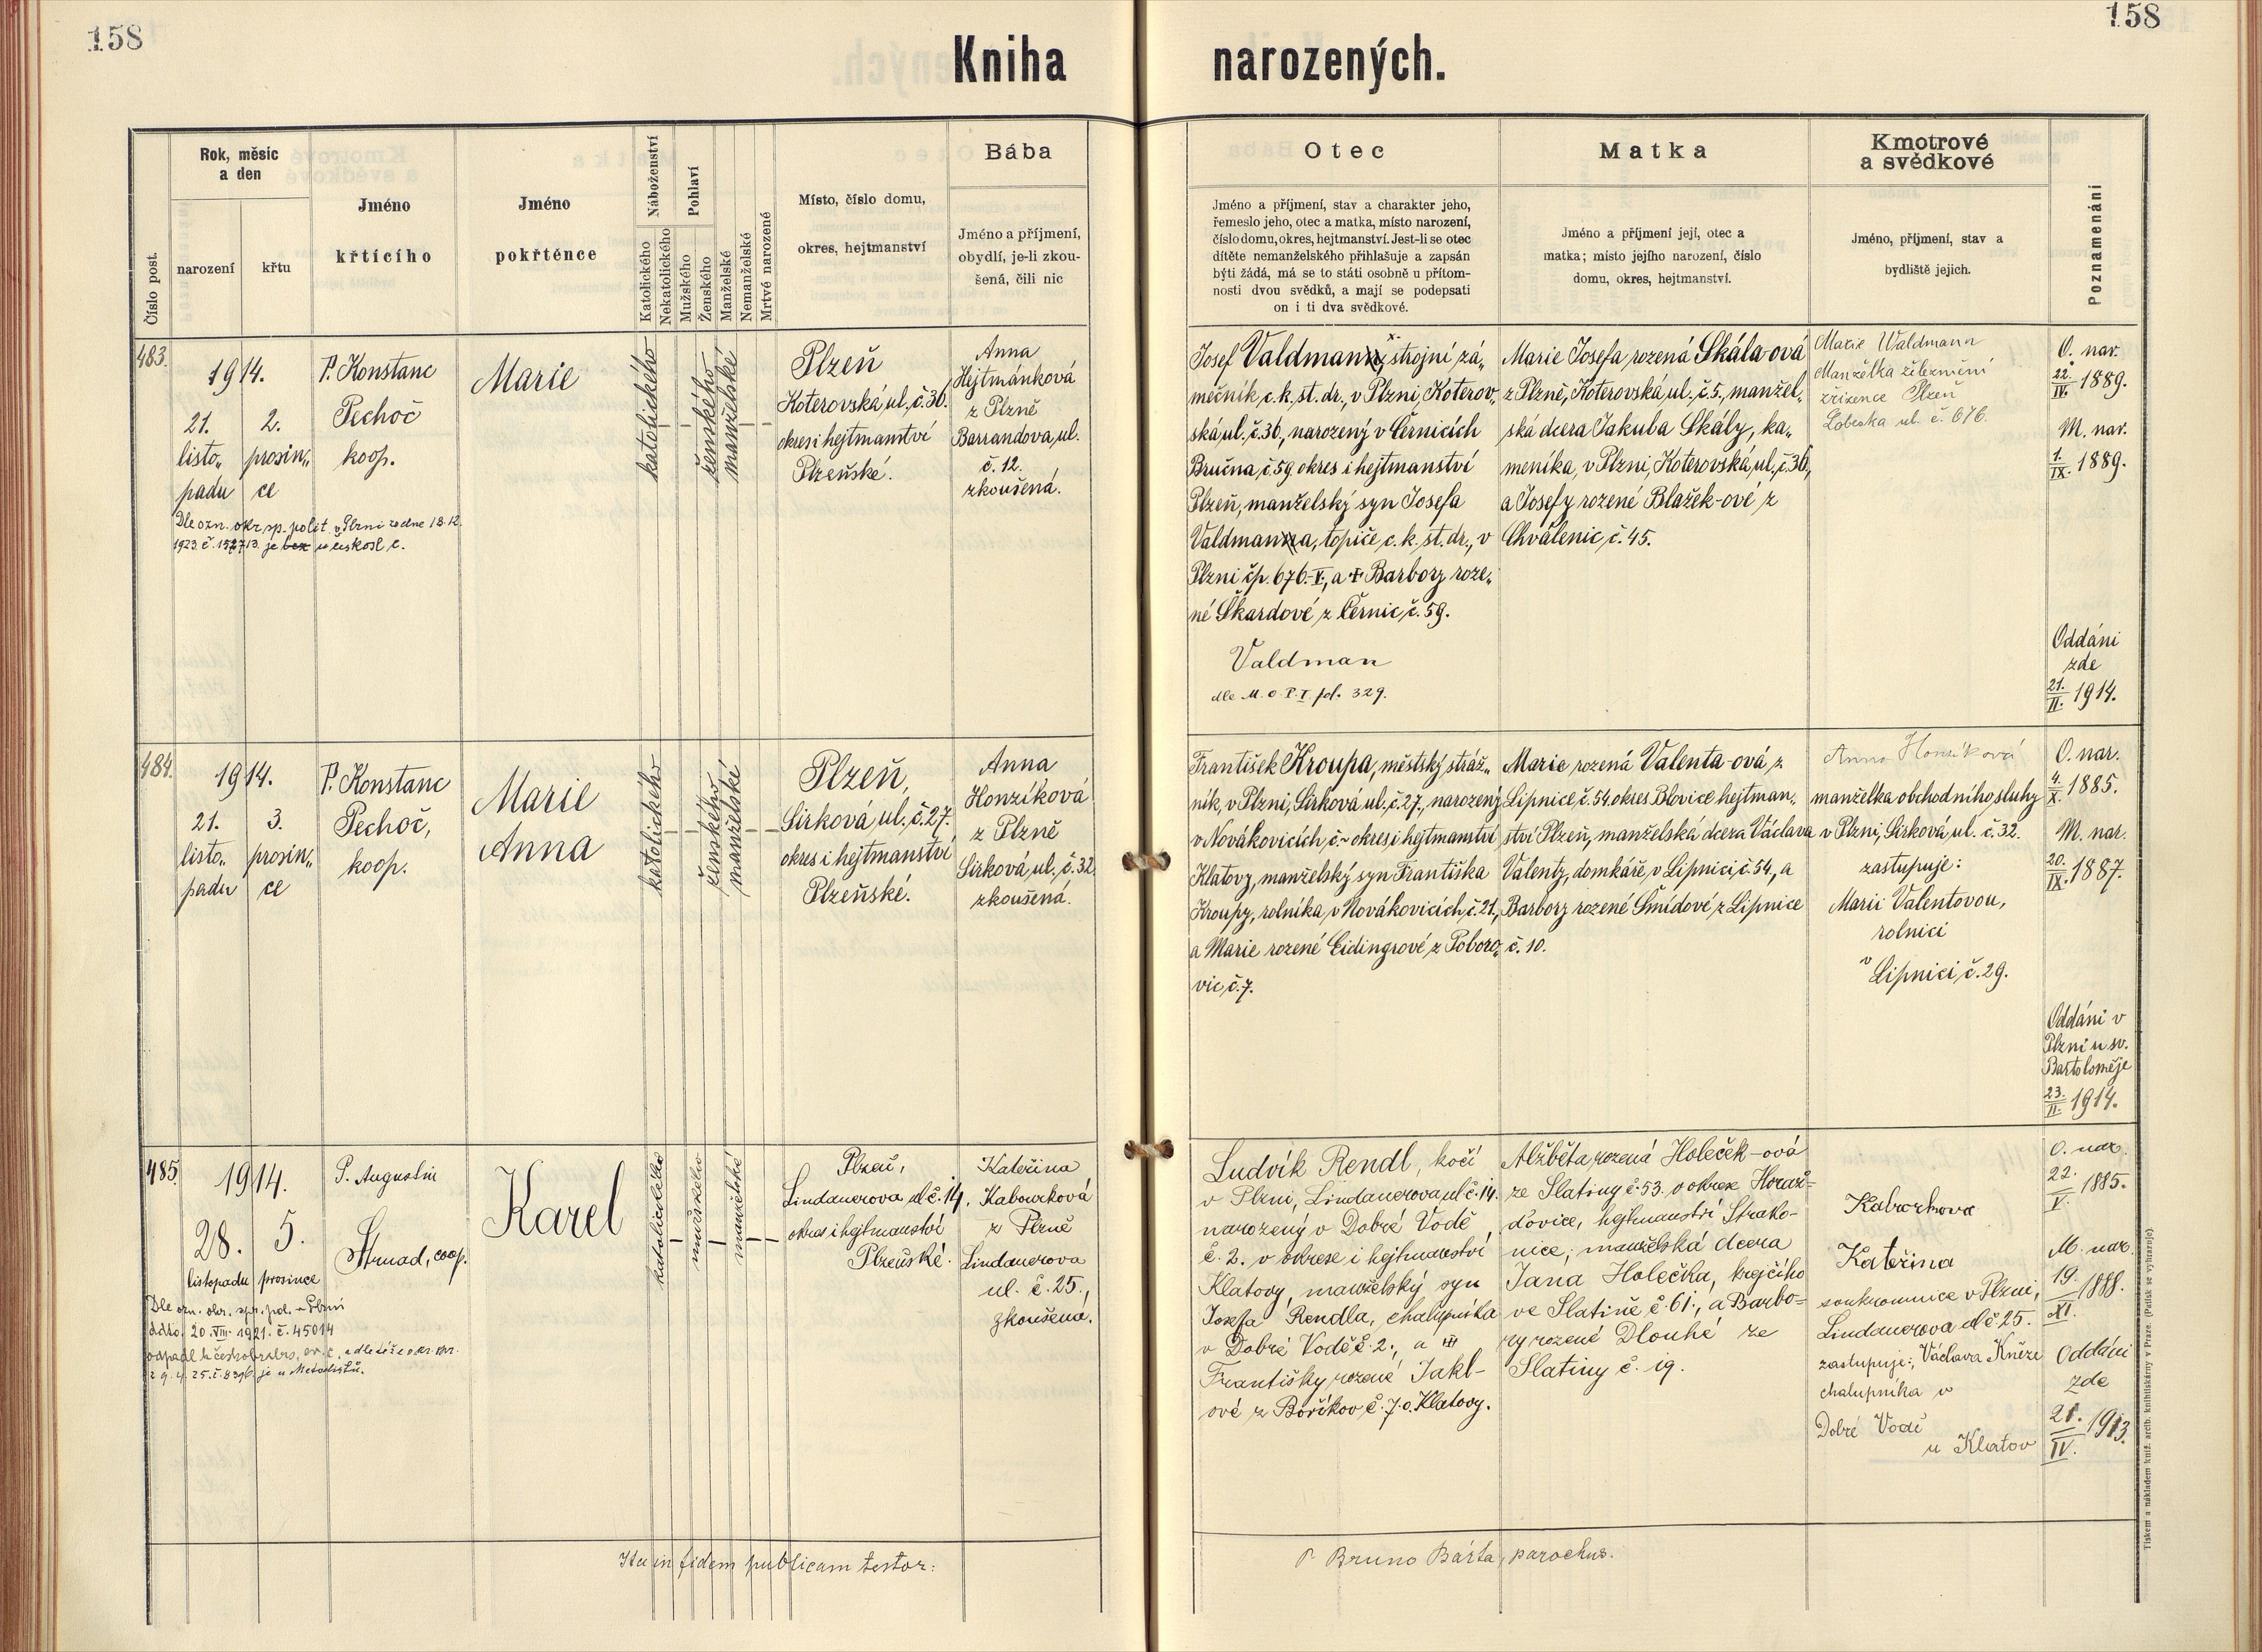 158
158
Kniha narozených.
Číslo post.
Rok, měsíc
a den
narození
křtu
Jméno
křtícího
Jméno
pokřtěnce
Náboženství
Katolického
Nekatolického
Pohlaví
Mužského
Ženského
Manželské
Nemanželské
Mrtvě narozené
Místo, číslo domu,
okres, hejtmanství
Bába
Jméno a příjmení,
obydlí, je-li zkou-
šená, čili nic
Otec
Jméno a příjmení, stav a charakter jeho,
řemeslo jeho, otec a matka, místo narození,
číslo domu, okres, hejtmanství. Jest-li se otec
dítěte nemanželského přihlašuje a zapsán
býti žádá, má se to státi osobně u přítom-
nosti dvou svědků, a mají se podepsati
on i ti dva svědkové.
Matka
Jméno a příjmení její, otec a
matka; místo jejího narození, číslo
domu, okres, hejtmanství.
Kmotrové
a svědkové
Jméno, příjmení, stav a
bydliště jejich.
Poznamenání
483.
1914.
21.
listo„
padu
2.
prosin„
ce
Dle ozn. okr. sp. polit v Plzni ze dne 18.12.
1923. č. 152713. je bez u čskosl c.
P. Konstanc
Pechoč
koop.
Marie
katolického
ženského
manželské
Plzeň
Koterovská ul., č. 36.
okres i hejtmanství
Plzeňské.
Anna
Hejtmánková
z Plzně
Barrandova, ul.
č. 12.
zkoušená.
Josef Valdmann, strojní zá„
mečník, c. k. st. dr., v Plzni, Koterov„
ská ul., č. 36, narozený v Černicích
Bručna, č. 59. okres i hejtmanství
Plzeň, manželský syn Josefa
Valdmanna, topiče c. k. st. dr., v
Plzni čp. 676.-V., a † Barbory roze„
né Škardové z Černic, č. 59.
Valdman
dle M. O. P. I. fol. 329.
Marie Josefa rozená Skála-ová
z Plzně, Koterovská ul., č. 5., manžel„
ská dcera Jakuba Skály, ka„
meníka, v Plzni, Koterovská ul., č. 36,
a Josefy rozené Blažek-ové z
Chválenic, č. 45.
Marie Waldmann
Manželka železniční
zřízence Plzeň
Lobezka ul. č. 676.
O. nar.
22.
IV. 1889.
M. nar.
1.
IX. 1889.
Oddáni
zde
21.
II. 1914.
484.
1914.
21.
listo„
padu
3.
prosin„
ce
P. Konstanc
Pechoč,
koop.
Marie
Anna
katolického
ženského
manželské
Plzeň,
Sirková, ul., č. 27.
okres i hejtmanství
Plzeňské.
Anna
Honzíková
z Plzně
Sirková, ul., č. 32.
zkoušená.
František Kroupa, městský stráž„
ník, v Plzni, Sirková, ul., č. 27., narozený
v Novákovicích, č. ~ okres i hejtmanství
Klatovy, manželský syn Františka
Kroupy, rolníka, v Novákovicích, č. 21.,
a Marie rozené Eidingrové z Poboro„
vic, č. 7.
Marie rozená Valenta-ová z
Lipnice č. 54. okres Blovice hejtman„
ství Plzeň, manželská dcera Václava
Valenty, domkáře, v Lipnici, č. 54., a
Barbory rozené Šmídové z Lipnice
č. 10.
Anna Honzíková
manželka obchodního sluhy
v Plzni, Sirková, ul. č. 32.
zastupuje:
Marii Valentovou,
rolnici
v Lipnici, č. 29.
O. nar.
4.
X. 1885.
M. nar.
20.
IX. 1887.
Oddáni v
Plzni u sv.
Bartoloměje
23.
II. 1914.
485.
1914.
28.
listopadu
5.
prosince
Dle ozn. okr. spr. pol. v Plzni
ddto. 20. VIII. 1921. č. 45014
odpadl k českobratrs. ev. c.
č. 8396. je u Metodistů.
P. Augustin
Strnad, coop.
Karel
katolického
mužského
manželské
Plzeň,
Lindauerova ul č. 14,
okres i hejtmanství
Plzeňské.
Kateřina
Kabourková
z Plzně
Lindauerova
ul. č. 25.,
zkoušena.
Ludvík Rendl, kočí
v Plzni, Lindauerova ul č. 14.
narozený v Dobré Vodě
č. 2. v okrese i hejtmanství
Klatovy, manželský syn
Josefa Rendla, chalupníka
v Dobré Vodě č. 2., a ††
Františky rozené Jakl-
ové z Boříkov č. 7. o. Klatovy.
Alžběta rozená Holeček-ová
ze Slatiny č. 53. v okrese Horaž=
ďovice, hejtmanství Strako-
nice; manželská dcera
Jana Holečka, krejčího
ve Slatině č. 61., a Barbo=
ry rozené Dlouhé ze
Slatiny č. 19.
Kabourkova
Kateřina
soukromnice v Plzni,
Lindauerova ul č 25.
zastupuje: Václava Kněze
chalupníka v
Dobré Vodě
u Klatov
O. nar.
22.
V. 1885.
M. nar.
19.
XI. 1888.
Oddáni
zde
21.
IV. 1913.
Ita in fidem publicam testor:
P. Bruno Bárta, parochus.
Tiskem a nákladem kníž. arcib. knihtiskárny v Praze. (Patisk se vyhrazuje).